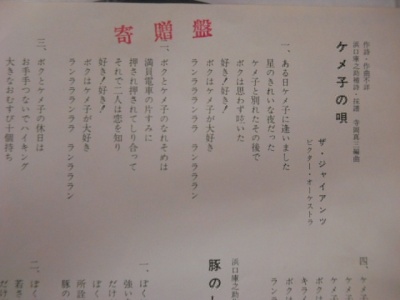 寄贈盤
作詩・作曲不詳
浜口庫之助補詩・採譜 寺岡真三編曲
ケメ子の唄
ザ・ジャイアンツ
ビクター・オーケストラ
一、ある日ケメ子に逢いました
星のきれいな夜だった
ケメ子と別れたその後で
ボクは思わず呟いた
好き!好き!
ボクはケメ子が大好き
ランラランララ ランララララン
二、ボクとケメ子のなれそめは
満員電車の片すみに
押され押されてしり合って
それで二人は恋を知り
好き!好き!
ボクはケメ子が大好き
ランラランララ ランララララン
三、ボクとケメ子の休日は
お手手つないでハイキング
大きなおむすび十個持ち
四、
ケメ
ケメ
ボク
キライ
ボク
ラン
浜口庫之助
豚の
一、ぼく
強い
だけ
ぼく
所詮
豚の
二、ぼく
若さ
だけ